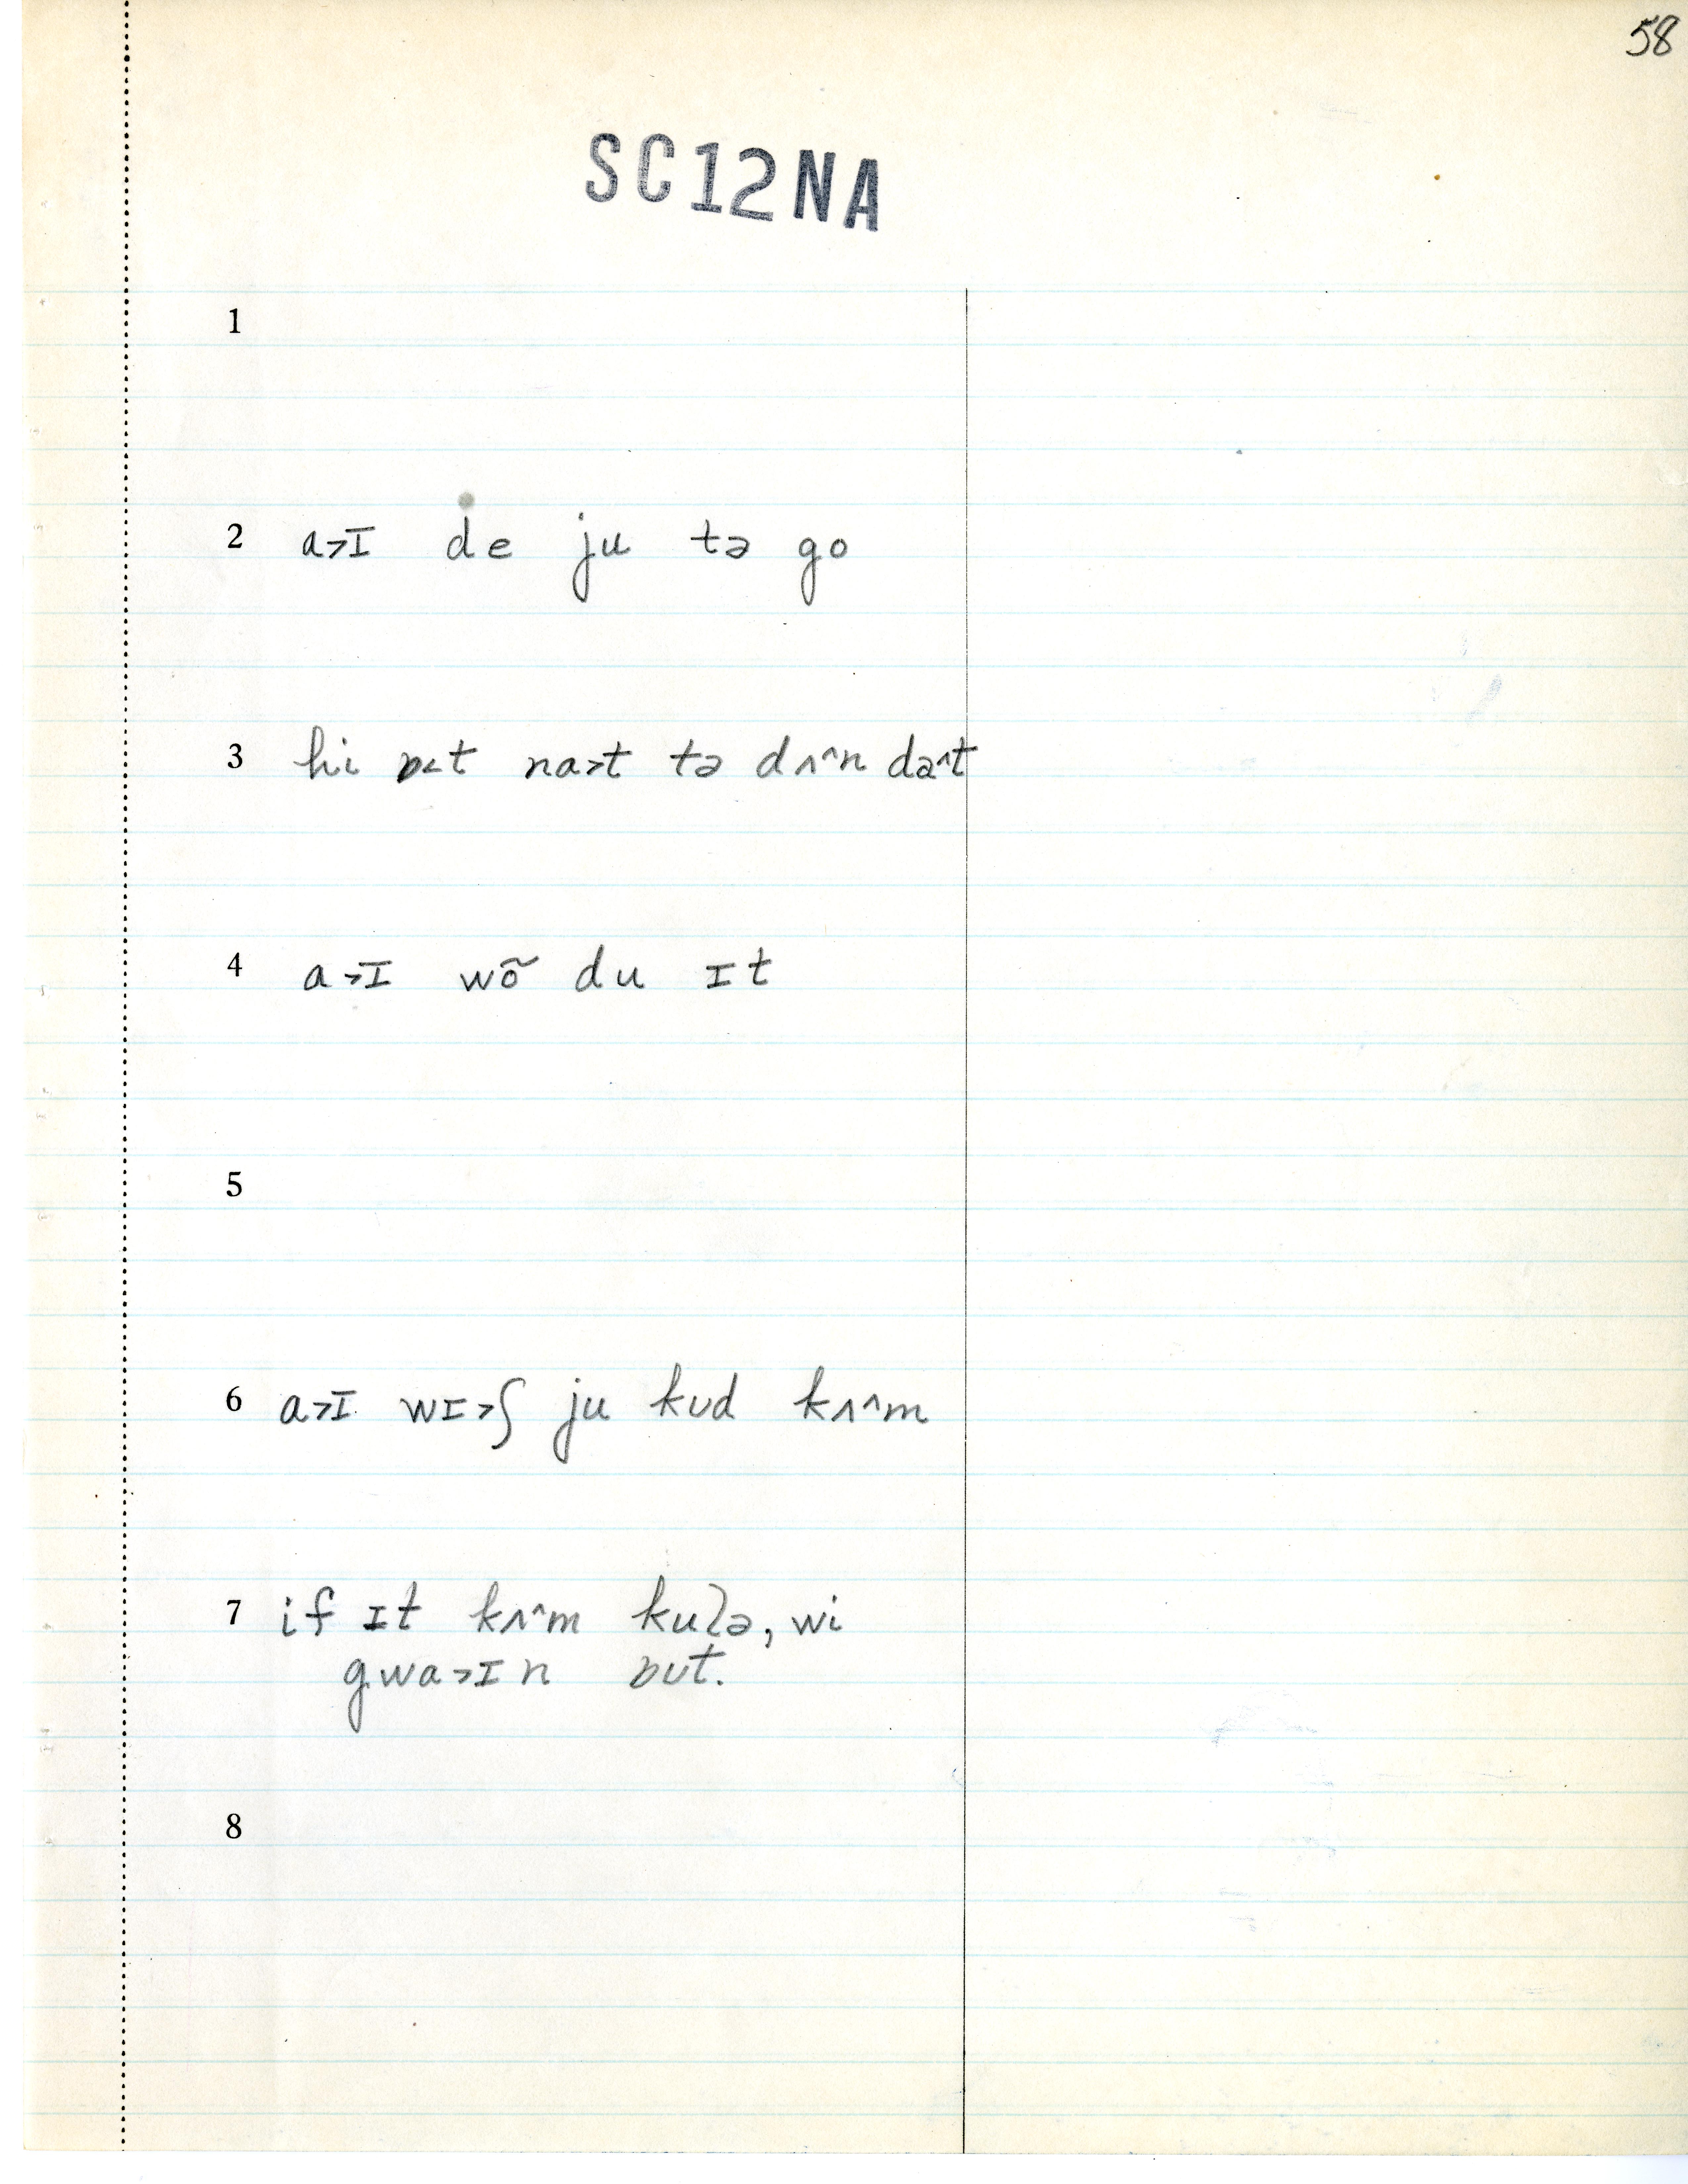 58
SC12NA
1
2 a>ɪ de ju tə go
3 hi ɒ<t na>t tə dʌ^n də^t
4 a>ɪ wõ du ɪt
5
6 a>ɪ wɪ>ʃ ju kʊd kʌ^^m
7 if ɪt kʌ^^m kulə, wi
gwa>ɪn ɒʊt.
8